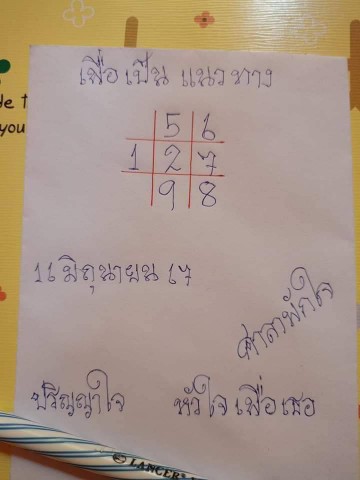 เพื่อเป็น แนวทาง
5 6
1 2 7
9 8
16 มิถุนายน 67
ศาลาพักใจ
ปริญญาใจ หัวใจเพื่อเธอ
LANCER
de t
you